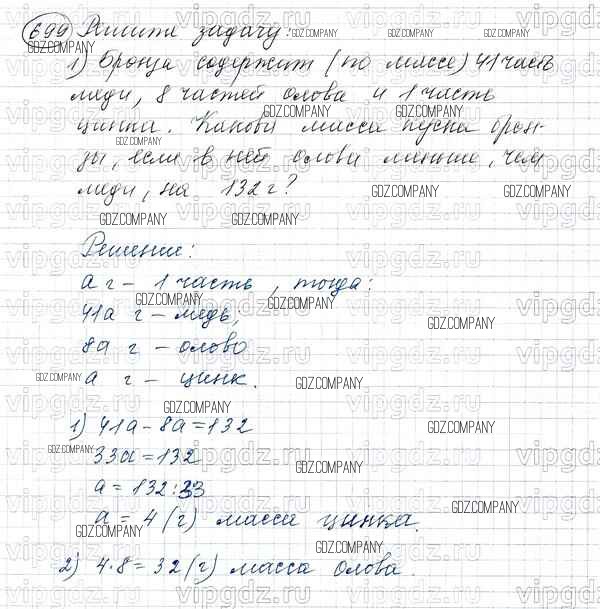 699 Решите задачу:
1) Бронза содержит (по массе) 41 часть
меди, 8 частей олова и 1 часть
цинка. Какова масса куска брон-
зы, если в ней олова меньше, чем
меди, на 132 г?
Решение:
а г – 1 часть, тогда:
41а г – медь;
8а г – олово
а г – цинк.
1) 41а – 8а = 132
33а = 132
а = 132 : 33
а = 4 (г) масса цинка.
2) 4 · 8 = 32 (г) масса олова.